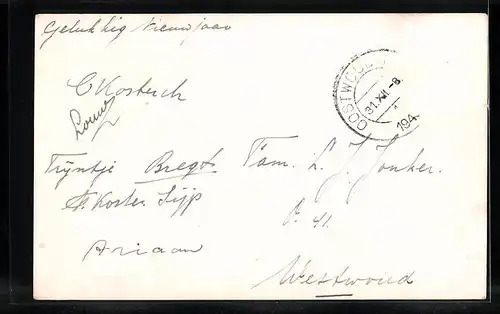 Gelukkig Nieuwjaar
C Kosterch
Louw
Tryntje Bregt
A. Koster. Sijp
Ariaan
OOSTWOUD
31.XII.-8.
194
Fam. L. J. Jonker.
A. 41.
Westwoud